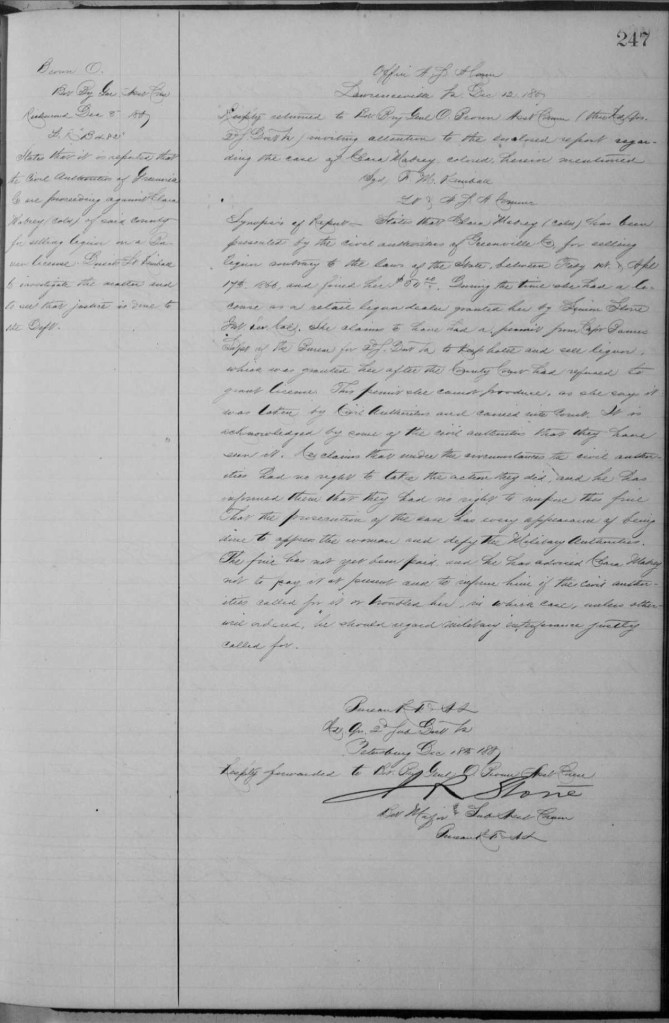 247
Brown O.
Bvt Brig Genl Asst Com
Richmond Dec 5" 1867
States that it is reported that
the Civil Authorities of Greensville
Co are proceeding against Clara
Maksey (cold) of said county
for selling liquor on a Bu-
reau license. Directs Lt Kimball
to investigate the matter and
to see that justice is done to
the Deft.
Office A S A Comr
Lawrenceville Va Dec 12. 1867
Respfly returned to Bvt Brig Genl O Brown Asst Comr (thro Hd Qrs
2d S Dist Va) inviting attention to the enclosed report regar-
ding the case of Clara Maksey colored, herein mentioned
Sgd F. M. Kimball
Lt & A S A Commr
Synopsis of Report — States that Clara Maksey (cold) has been
presented by the civil authorities of Greensville Co for selling
liquor contrary to the law of the State, between Feby 1st & Apl
17th 1866, and fined her $60.00. During the time she had a li-
cense as a retail liquor dealer granted her by
She claims to have had a permit from Capt Barnes
Supt of the Bureau for 2d S. Dist Va to keep hotel and sell liquor,
which was granted her after the County Court had refused to
grant license. This permit she cannot produce, as she says it
was taken by Civil Authorities and carried into Court. It is
acknowledged by some of the civil authorities that they have
seen it. He claims that under the circumstances the civil author-
ities had no right to take the action they did, and he has
informed them that they had no right to impose this fine
That the prosecution of the case has every appearance of being
done to oppress the woman and defy the Military Authorities.
The fine has not yet been paid and he has advised Clara Maksey
not to pay it at present and to inform him if the civil author-
ities called for it or troubled her, in which case, unless other-
wise ordered, he should regard military interference justly
called for.
Bureau R. F. & A. L.
Hd Qrs. 2d Sub Dist Va
Petersburg Dec 18th 1867
Respfly forwarded to Bvt. Brig Genl O Brown Asst Comr
J R Stone
Bvt Major & Sub Asst Comr
Bureau R F & A L